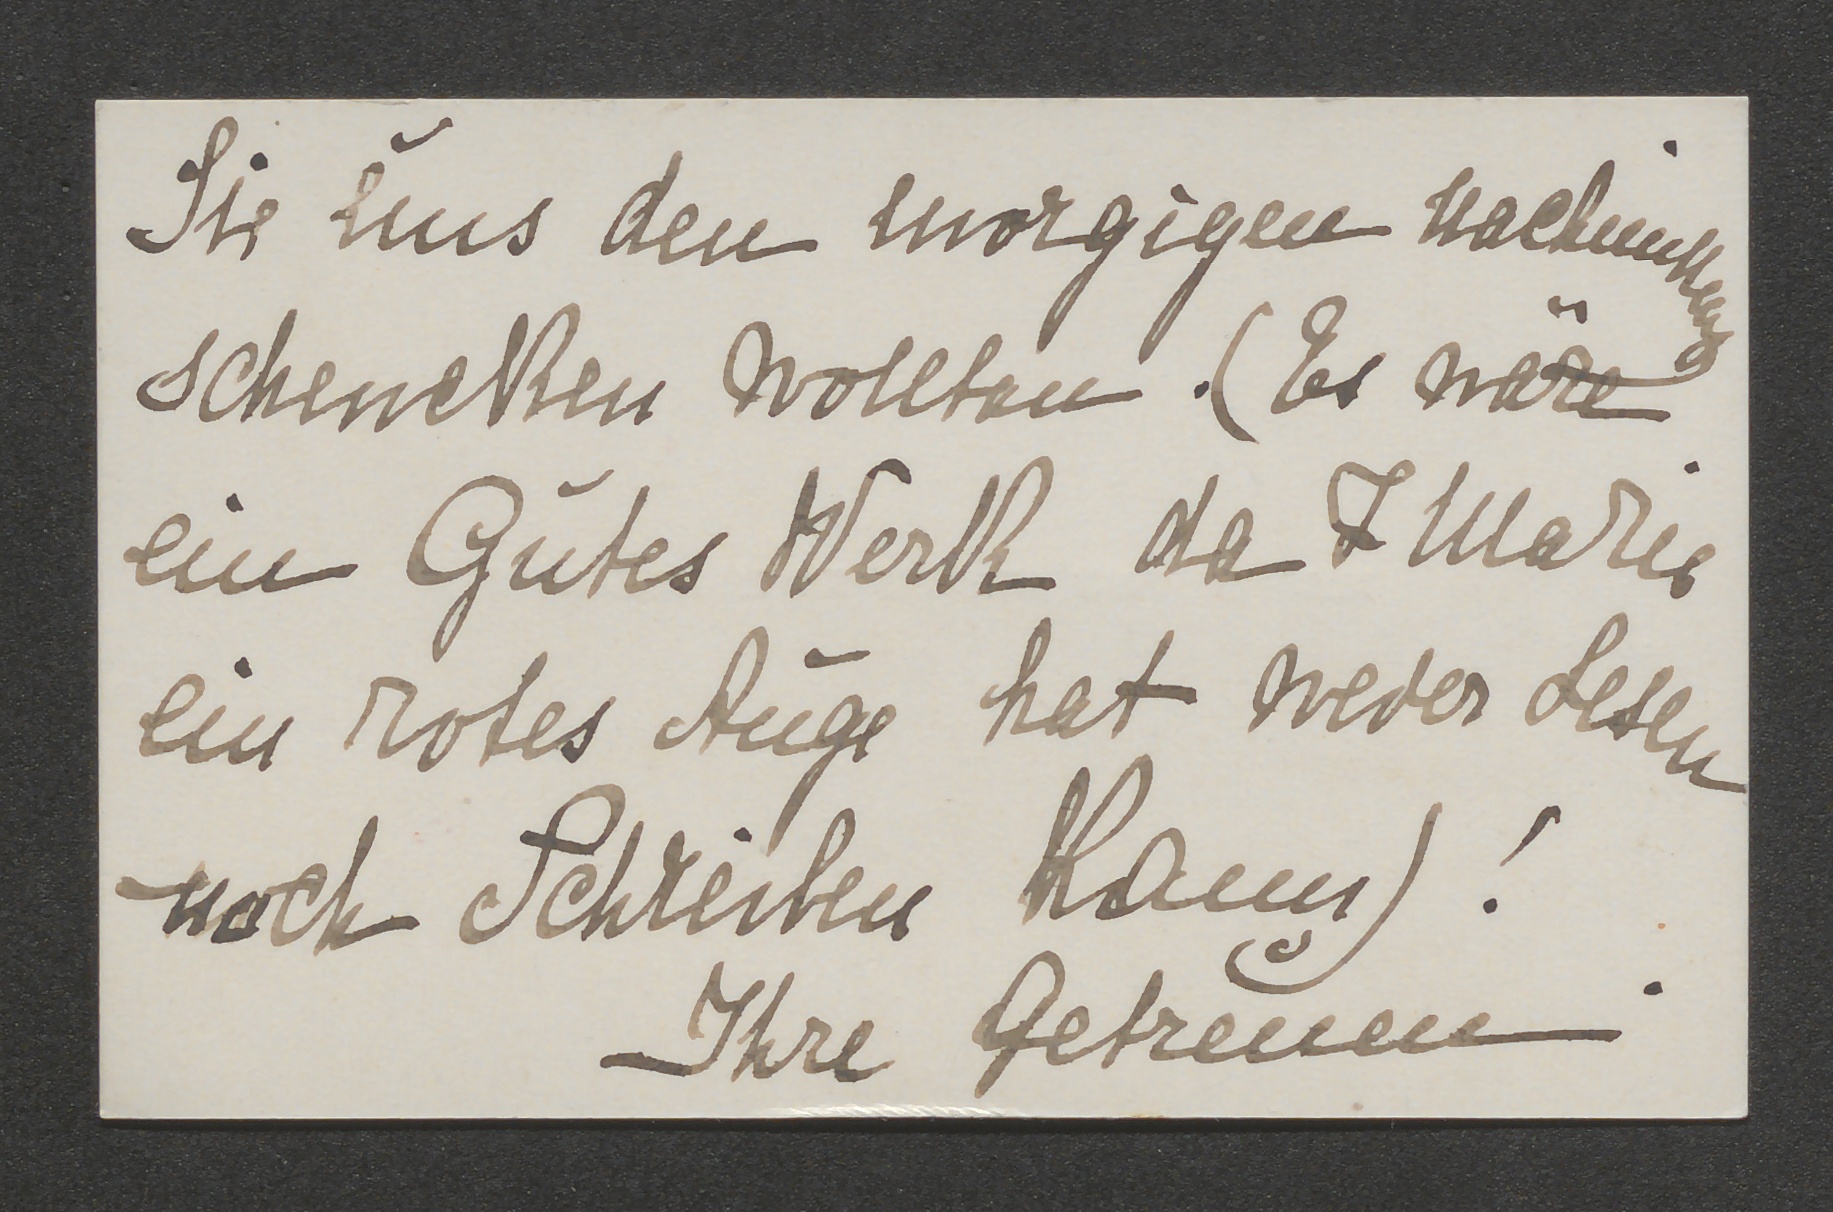 Sie uns den morgigen Nachmittag
schencken wollten. (Es wäre
ein Gutes Werk da I Marie
ein rotes Auge hat weder Lesen
noch Schreiben kann)!
Ihre Getreuen